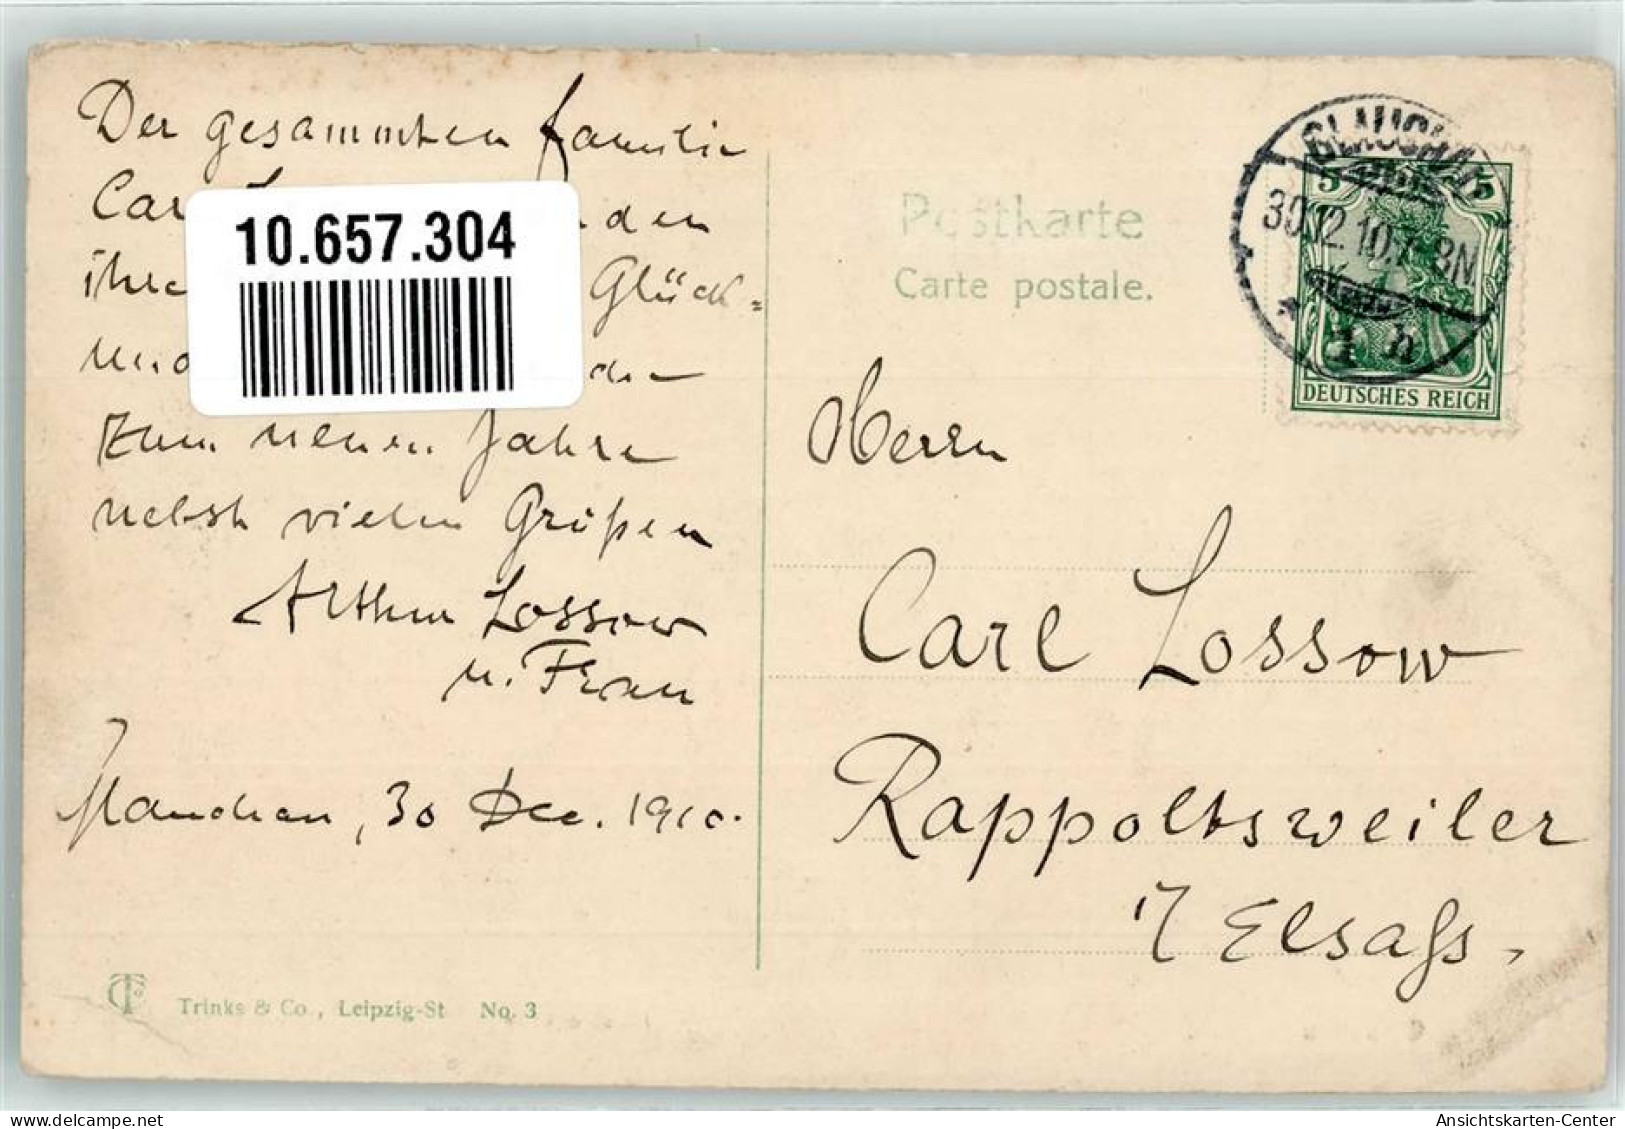 Der gesammten Familie
Car
den
ihre Glück-
und
zum neuen Jahre
nebst vielen Grüßen
Arthur Lossow
u. Frau
30 Dec. 1910.
10.657.304
Postkarte
Carte postale.
GLAUCHAU
30.12.10.7-8N.
* 1 h
5 5
DEUTSCHES REICH
Herrn
Carl Lossow
Rappoltsweiler
i/ Elsaß.
Trinks & Co., Leipzig-St No. 3
Ansichtskarten-Center